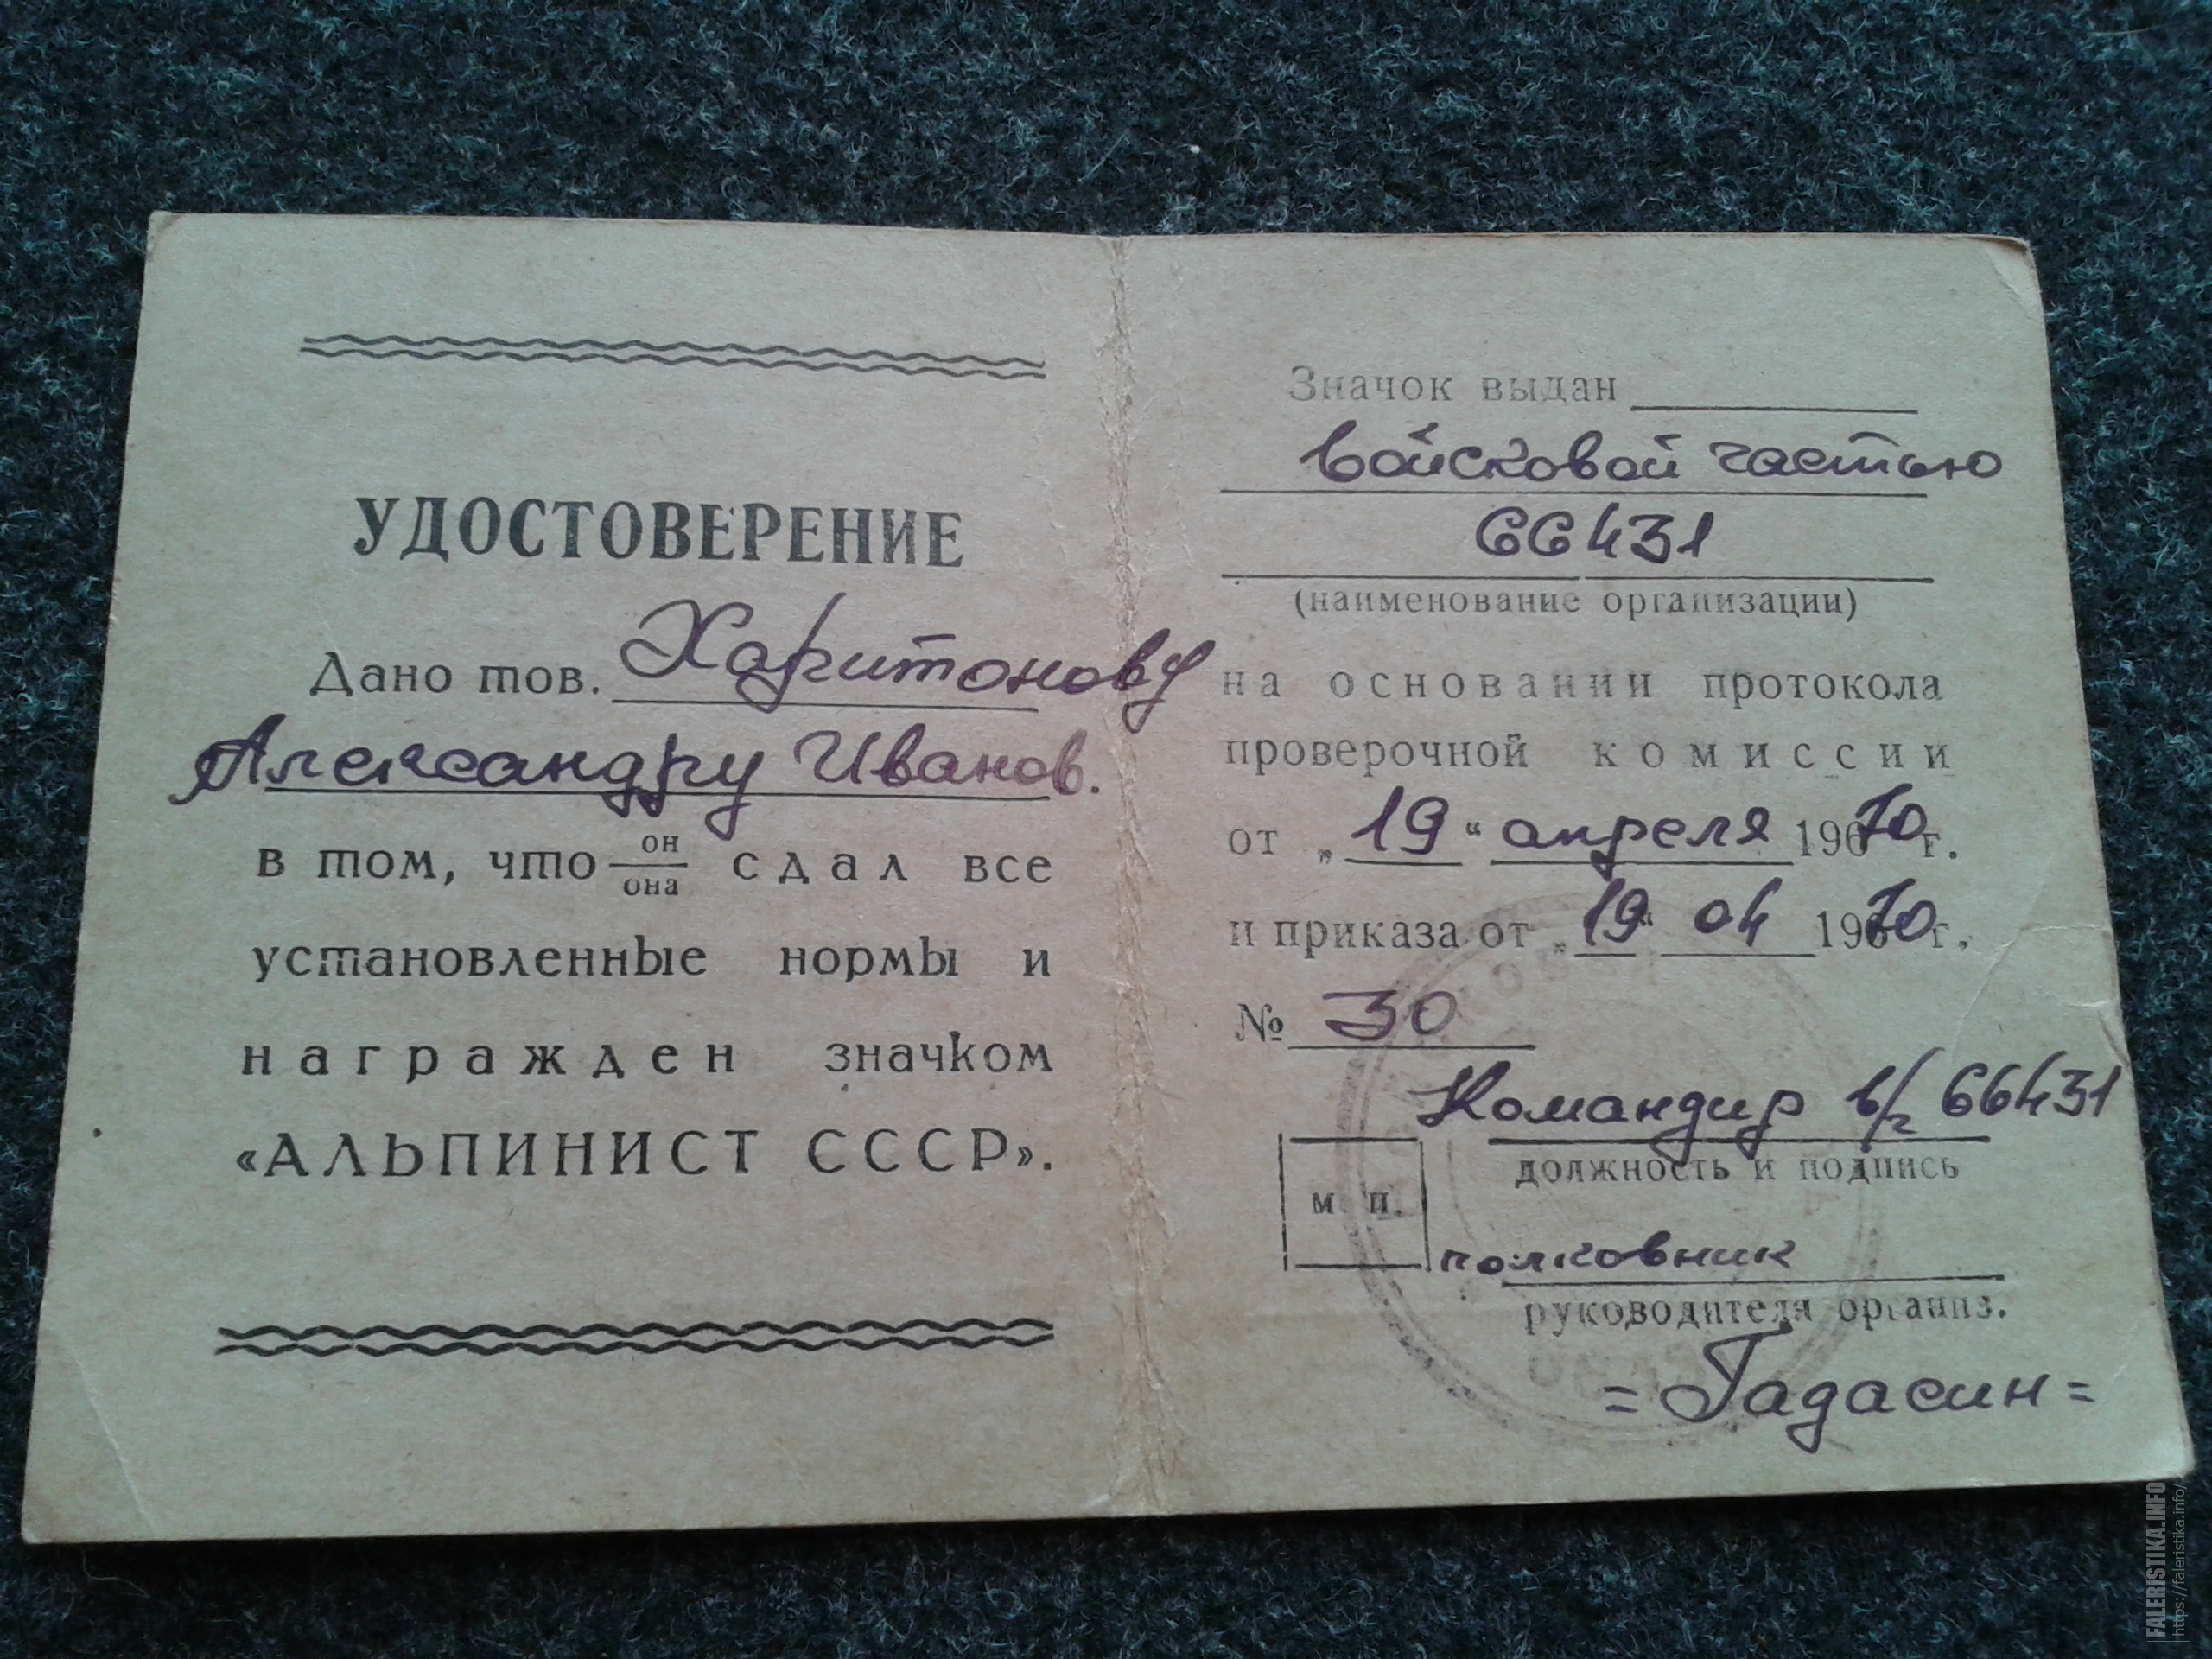 УДОСТОВЕРЕНИЕ
Дано тов. Харитонову
Александру Иванов.
в том, что он/она сдал все
установленные нормы и
награжден значком
«АЛЬПИНИСТ СССР».
Значок выдан
войсковой частью
66431
(наименование организации)
на основании протокола
проверочной комиссии
от „19“ апреля 1970 г.
и приказа от „19“ 04 1970 г.
№ 30
Командир в/ч 66431
должность и подпись
м. п.
полковник
руководителя организ.
=Гадасин=
FALERISTIKA.INFO
https://faleristika.info/